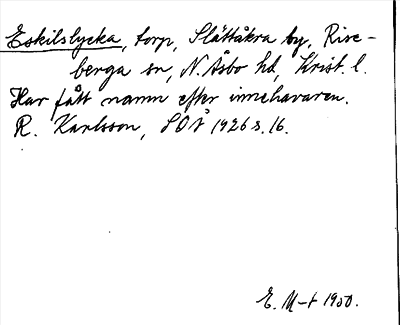 Eskilslycka, torp, Slättåkra by, Rise-
berga sn, N. Åsbo hd, Krist. l.
Har fått namn efter innehavaren.
R. Karlsson, SOÅ 1926 s. 16.
E. M-t 1950.